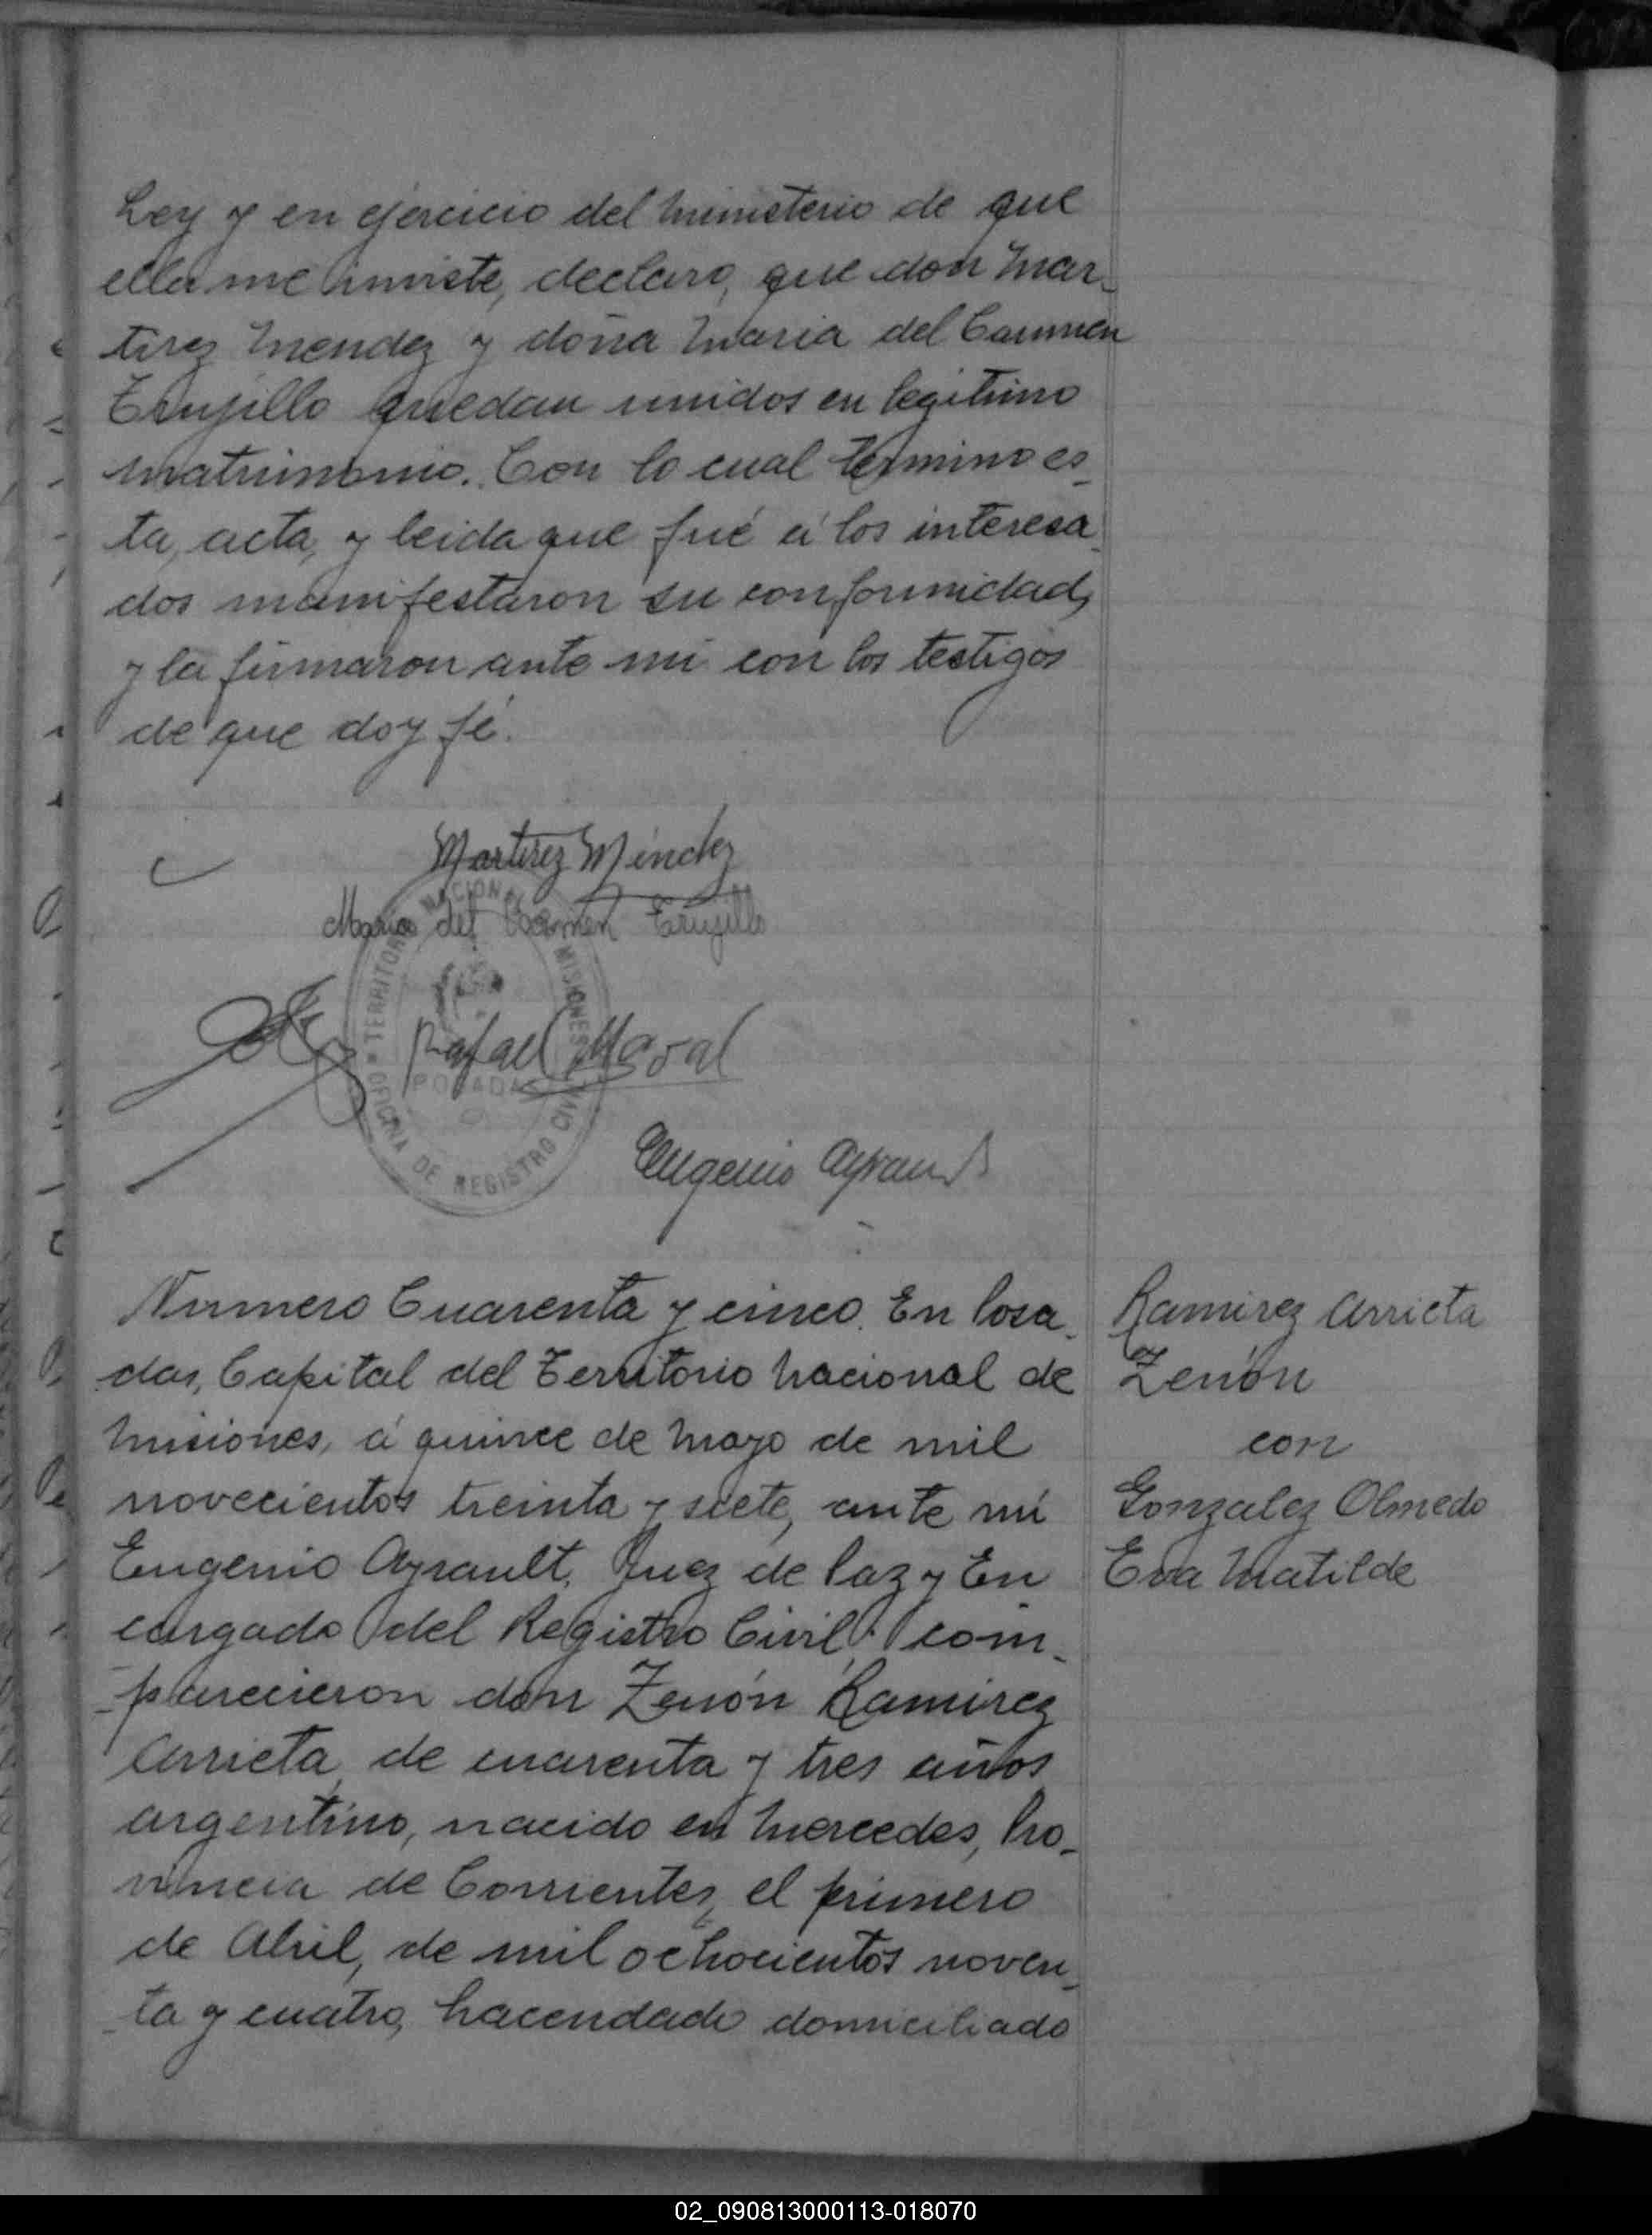 Ley y en ejercicio del ministerio de que
ella me inviste, declaro, que don Mar-
tirez Mendez y doña Maria del Carmen
Trujillo quedan unidos en legitimo
matrimonio. Con lo cual termino es-
ta, acta, y leida que fué á los interesa-
dos manifestaron su conformidad,
y la firmaron ante mi con los testigos
de que doy fé.
Martirez Méndez
Maria del Carmen Trujillo
Rafael
TERRITORIO NACIONAL MISIONES
POSADAS
OFICINA DE REGISTRO CIVIL
Eugenio Ayrault
Numero Cuarenta y cinco. En Posa-
das, Capital del Territorio Nacional de
Misiones, á quince de Mayo de mil
novecientos treinta y siete, ante mi
Eugenio Ayrault, Juez de Paz y En
cargado del Registro Civil, com-
parecieron don Zenón Ramirez
Arrieta, de cuarenta y tres años
argentino, nacido en Mercedes, Pro-
vincia de Corrientes, el primero
de Abril, de mil ochocientos noven-
ta y cuatro, hacendado domiciliado
Ramirez Arrieta
Zenón
con
Gonzalez Olmedo
Eva Matilde
02_090813000113-018070